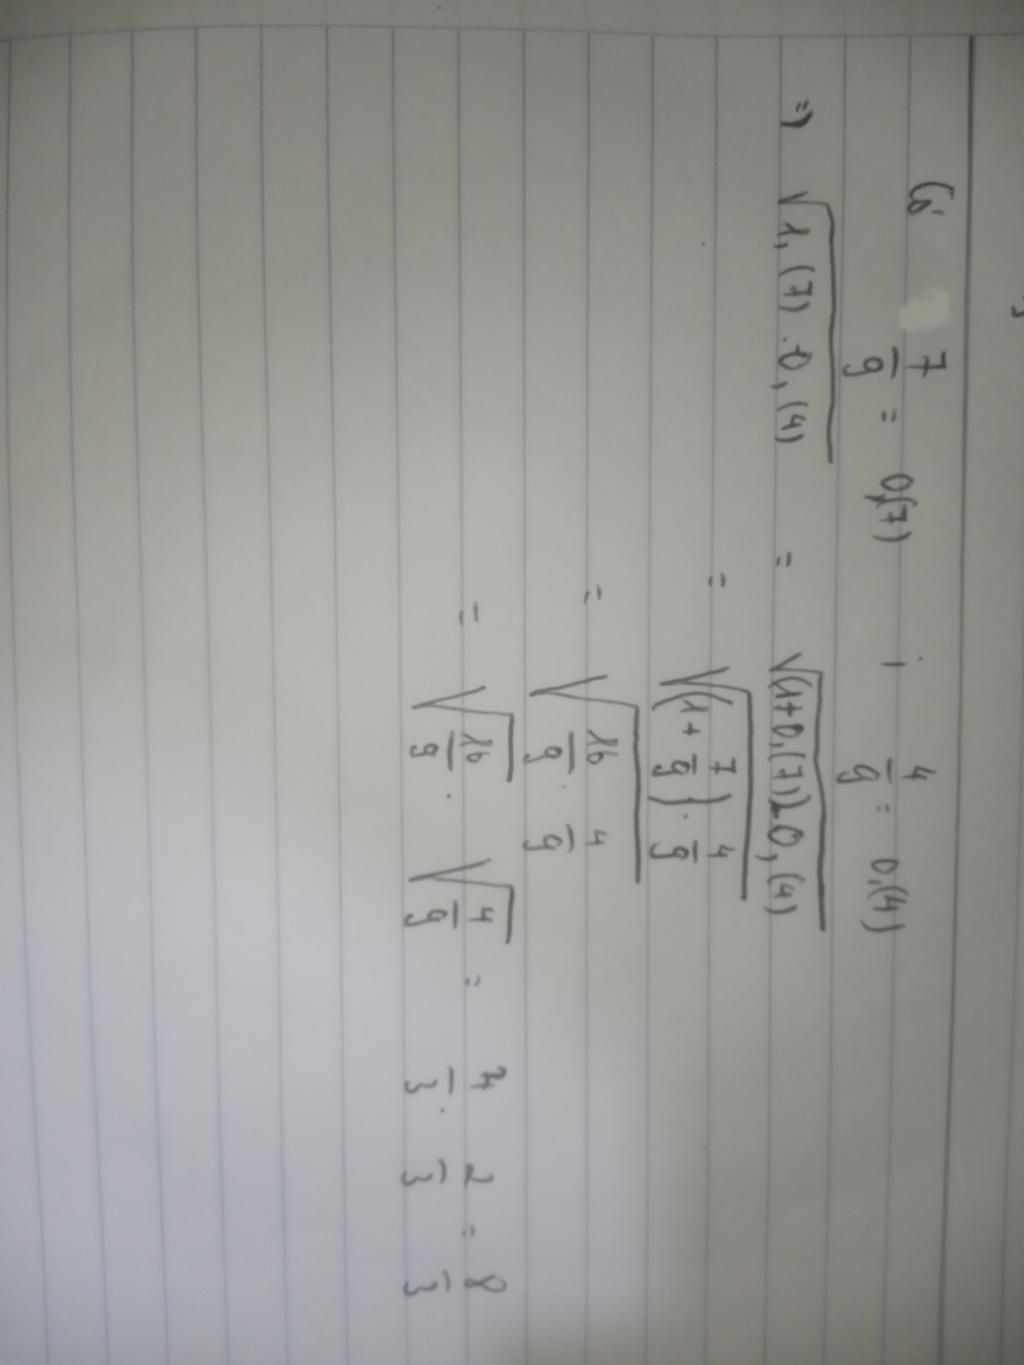 Có 7/9 = 0,(7) ; 4/9 = 0,(4)
=> √(1,(7) . 0,(4)) = √((1+0,(7)).0,(4))
= √((1 + 7/9) . 4/9)
= √(16/9 . 4/9)
= √(16/9) . √(4/9) = 4/3 . 2/3 = 8/3